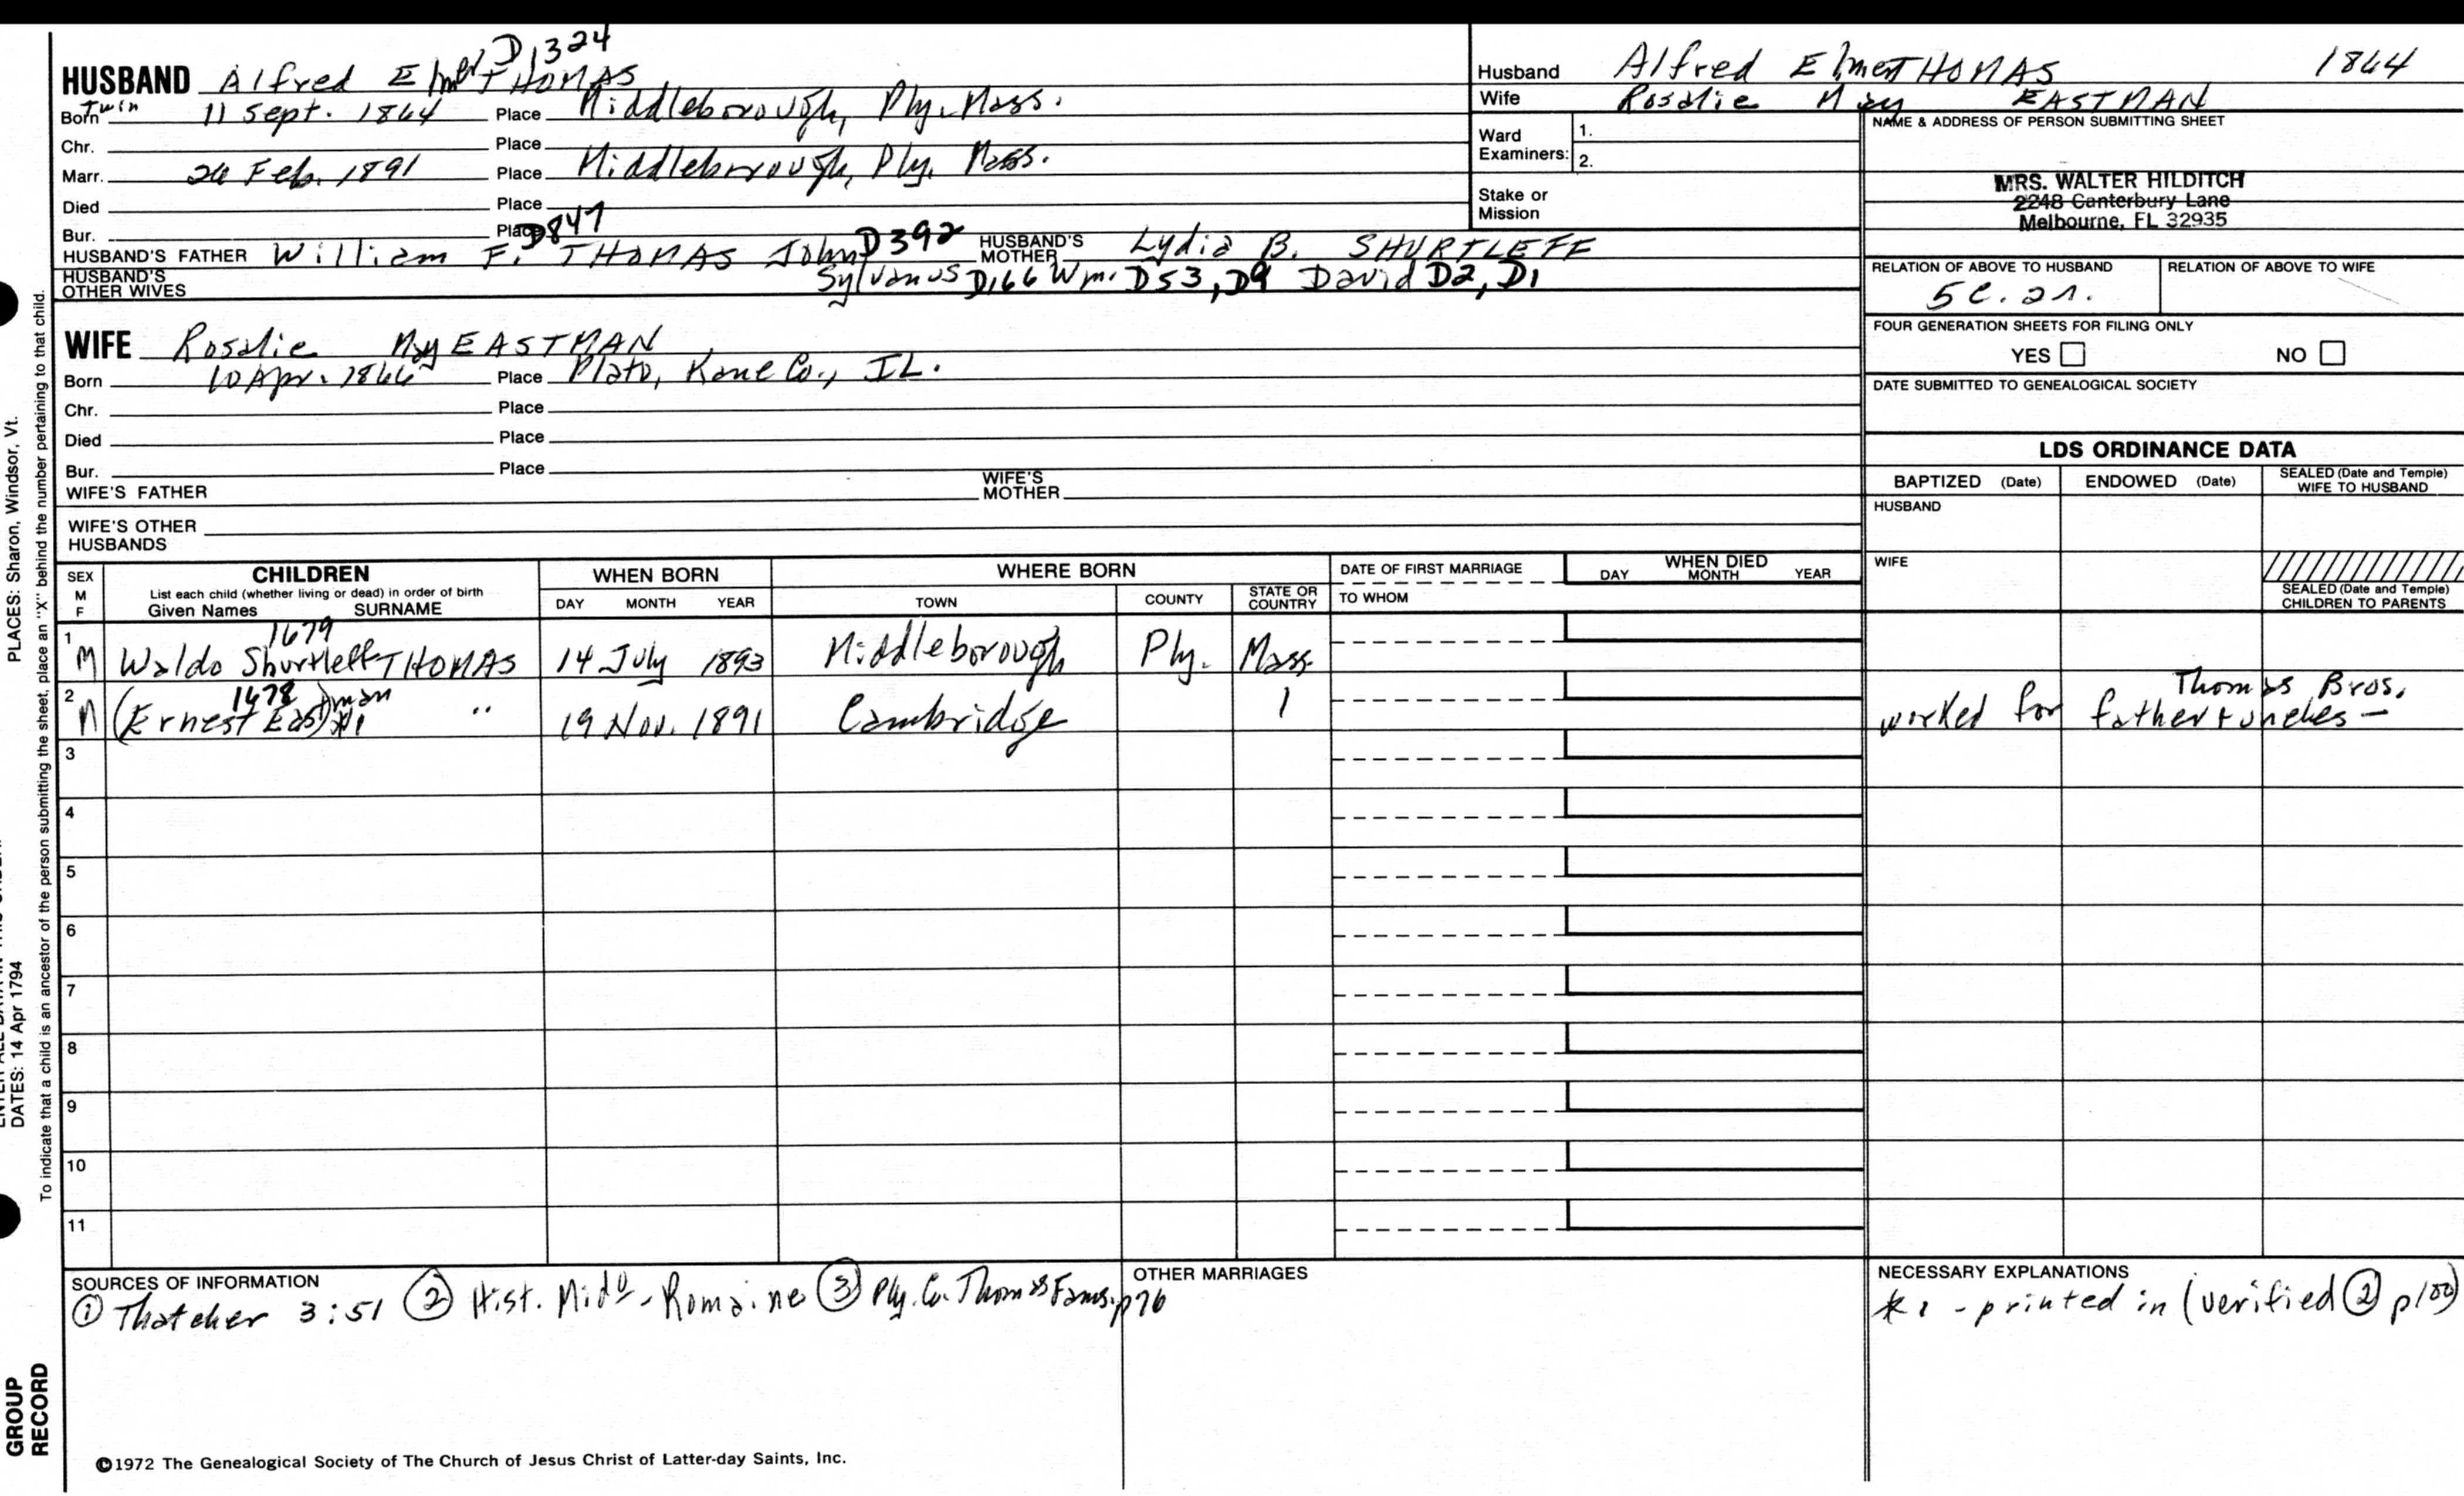 HUSBAND Alfred Elmer THOMAS D1324
Born Twin 11 Sept. 1864 Place Middleborough, Ply. Mass.
Chr. Place
Marr. 26 Feb. 1891 Place Middleborough, Ply. Mass.
Died Place
Bur. Place
HUSBAND'S FATHER William F. THOMAS D847 John D392 HUSBAND'S MOTHER Lydia B. SHURTLEFF
HUSBAND'S OTHER WIVES Sylvanus D166 Wm. D53, D9 David D2, D1
WIFE Rosalie May EASTMAN
Born 10 Apr. 1866 Place Plato, Kane Co., IL.
Chr. Place
Died Place
Bur. Place
WIFE'S FATHER WIFE'S MOTHER
WIFE'S OTHER HUSBANDS
Husband Alfred Elmer THOMAS 1864
Wife Rosalie May EASTMAN
Ward Examiners: 1.
2.
Stake or Mission
NAME & ADDRESS OF PERSON SUBMITTING SHEET
MRS. WALTER HILDITCH
2248 Canterbury Lane
Melbourne, FL 32935
RELATION OF ABOVE TO HUSBAND RELATION OF ABOVE TO WIFE
5C.2r.
FOUR GENERATION SHEETS FOR FILING ONLY
YES NO
DATE SUBMITTED TO GENEALOGICAL SOCIETY
LDS ORDINANCE DATA
BAPTIZED (Date) ENDOWED (Date) SEALED (Date and Temple) WIFE TO HUSBAND
HUSBAND
WIFE
SEALED (Date and Temple) CHILDREN TO PARENTS
SEX M F CHILDREN List each child (whether living or dead) in order of birth Given Names SURNAME
WHEN BORN DAY MONTH YEAR
WHERE BORN TOWN COUNTY STATE OR COUNTRY
DATE OF FIRST MARRIAGE TO WHOM
WHEN DIED DAY MONTH YEAR
1 M Waldo Shurtleff THOMAS 1679 14 July 1893 Middleborough Ply. Mass.
2 M (Ernest Eastman) *1 1678 " 19 Nov. 1891 Cambridge worked for father & uncles – Thomas Bros.
3
4
5
6
7
8
9
10
11
SOURCES OF INFORMATION
① Thatcher 3:51 ② Hist. Midº - Romaine ③ Ply. Co. Thomas Fams. p76
OTHER MARRIAGES
NECESSARY EXPLANATIONS
*1 - printed in (verified ② p100)
©1972 The Genealogical Society of The Church of Jesus Christ of Latter-day Saints, Inc.
PLACES: Sharon, Windsor, Vt.
DATES: 14 Apr 1794
To indicate that a child is an ancestor of the person submitting the sheet, place an "X" behind the number pertaining to that child.
GROUP
RECORD